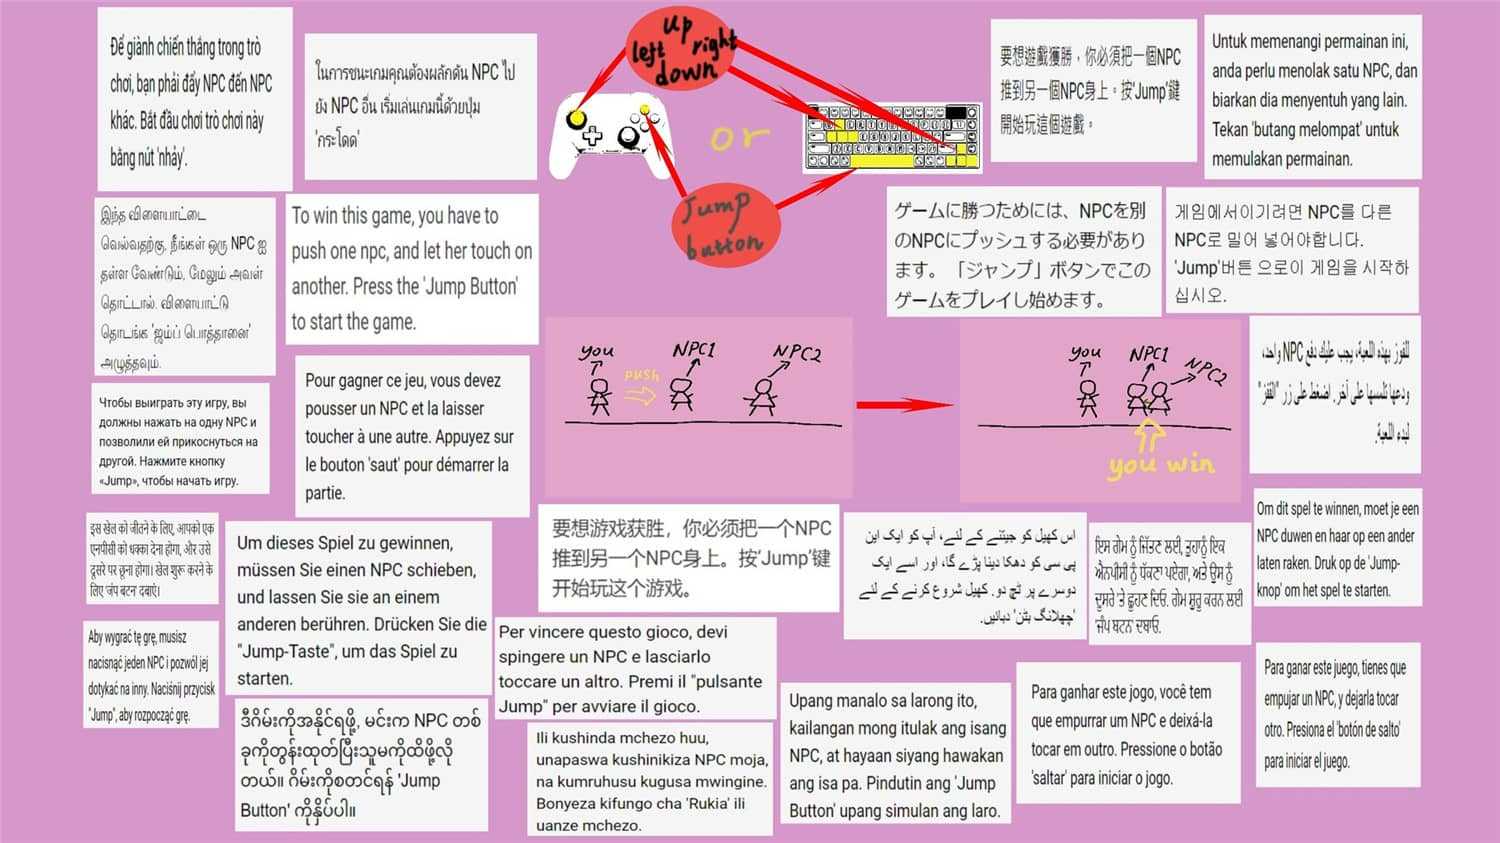 Để giành chiến thắng trong trò
chơi, bạn phải đẩy NPC đến NPC
khác. Bắt đầu chơi trò chơi này
bằng nút 'nhảy'.
ในการชนะเกมคุณต้องผลักดัน NPC ไป
ยัง NPC อื่น เริ่มเล่นเกมนี้ด้วยปุ่ม
'กระโดด'
up
left right
down
or
Jump
button
要想遊戲獲勝，你必須把一個NPC
推到另一個NPC身上。按'Jump'鍵
開始玩這個遊戲。
Untuk memenangi permainan ini,
anda perlu menolak satu NPC, dan
biarkan dia menyentuh yang lain.
Tekan 'butang melompat' untuk
memulakan permainan.
இந்த விளையாட்டை
வெல்வதற்கு, நீங்கள் ஒரு NPC ஐ
தள்ள வேண்டும், மேலும் அவள்
தொட்டால். விளையாட்டு
தொடங்க 'ஜம்ப் பொத்தானை'
அழுத்தவும்.
To win this game, you have to
push one npc, and let her touch on
another. Press the 'Jump Button'
to start the game.
ゲームに勝つためには、NPCを別
のNPCにプッシュする必要があり
ます。「ジャンプ」ボタンでこの
ゲームをプレイし始めます。
게임에서이기려면 NPC를 다른
NPC로 밀어 넣어야합니다.
'Jump'버튼 으로이 게임을 시작하
십시오.
you
NPC1
NPC2
push
you
NPC1
NPC2
you win
للفوز بهذه اللعبة، يجب عليك دفع NPC واحد،
ودعها تلمسها على آخر. اضغط على زر "القفز"
لبدء اللعبة.
Чтобы выиграть эту игру, вы
должны нажать на одну NPC и
позволили ей прикоснуться на
другой. Нажмите кнопку
«Jump», чтобы начать игру.
Pour gagner ce jeu, vous devez
pousser un NPC et la laisser
toucher à une autre. Appuyez sur
le bouton 'saut' pour démarrer la
partie.
इस खेल को जीतने के लिए, आपको एक
एनपीसी को धक्का देना होगा, और उसे
दूसरे पर छूना होगा। खेल शुरू करने के
लिए 'जंप बटन' दबाएं।
Um dieses Spiel zu gewinnen,
müssen Sie einen NPC schieben,
und lassen Sie sie an einem
anderen berühren. Drücken Sie die
"Jump-Taste", um das Spiel zu
starten.
要想游戏获胜，你必须把一个NPC
推到另一个NPC身上。按'Jump'键
开始玩这个游戏。
اس کھیل کو جیتنے کے لئے، آپ کو ایک این
پی سی کو دھکا دینا پڑے گا، اور اسے ایک
دوسرے پر ٹچ دو. کھیل شروع کرنے کے لئے
'چھلانگ بٹن' دبائیں.
ਇਸ ਗੇਮ ਨੂੰ ਜਿੱਤਣ ਲਈ, ਤੁਹਾਨੂੰ ਇਕ
ਐਨਪੀਸੀ ਨੂੰ ਧੱਕਣਾ ਪਏਗਾ, ਅਤੇ ਉਸ ਨੂੰ
ਦੂਸਰੇ 'ਤੇ ਛੂਹਣ ਦਿਓ. ਗੇਮ ਸ਼ੁਰੂ ਕਰਨ ਲਈ
'ਜੰਪ ਬਟਨ' ਦਬਾਓ.
Om dit spel te winnen, moet je een
NPC duwen en haar op een ander
laten raken. Druk op de 'Jump-
knop' om het spel te starten.
Aby wygrać tę grę, musisz
nacisnąć jeden NPC i pozwól jej
dotykać na inny. Naciśnij przycisk
"Jump", aby rozpocząć grę.
ဒီဂိမ်းကိုအနိုင်ရဖို့, မင်းက NPC တစ်
ခုကိုတွန်းထုတ်ပြီးသူမကိုထိဖို့လို
တယ်။ ဂိမ်းကိုစတင်ရန် 'Jump
Button' ကိုနှိပ်ပါ။
Per vincere questo gioco, devi
spingere un NPC e lasciarlo
toccare un altro. Premi il "pulsante
Jump" per avviare il gioco.
Ili kushinda mchezo huu,
unapaswa kushinikiza NPC moja,
na kumruhusu kugusa mwingine.
Bonyeza kifungo cha 'Rukia' ili
uanze mchezo.
Upang manalo sa larong ito,
kailangan mong itulak ang isang
NPC, at hayaan siyang hawakan
ang isa pa. Pindutin ang 'Jump
Button' upang simulan ang laro.
Para ganhar este jogo, você tem
que empurrar um NPC e deixá-la
tocar em outro. Pressione o botão
'saltar' para iniciar o jogo.
Para ganar este juego, tienes que
empujar un NPC, y dejarla tocar
otro. Presiona el 'botón de salto'
para iniciar el juego.